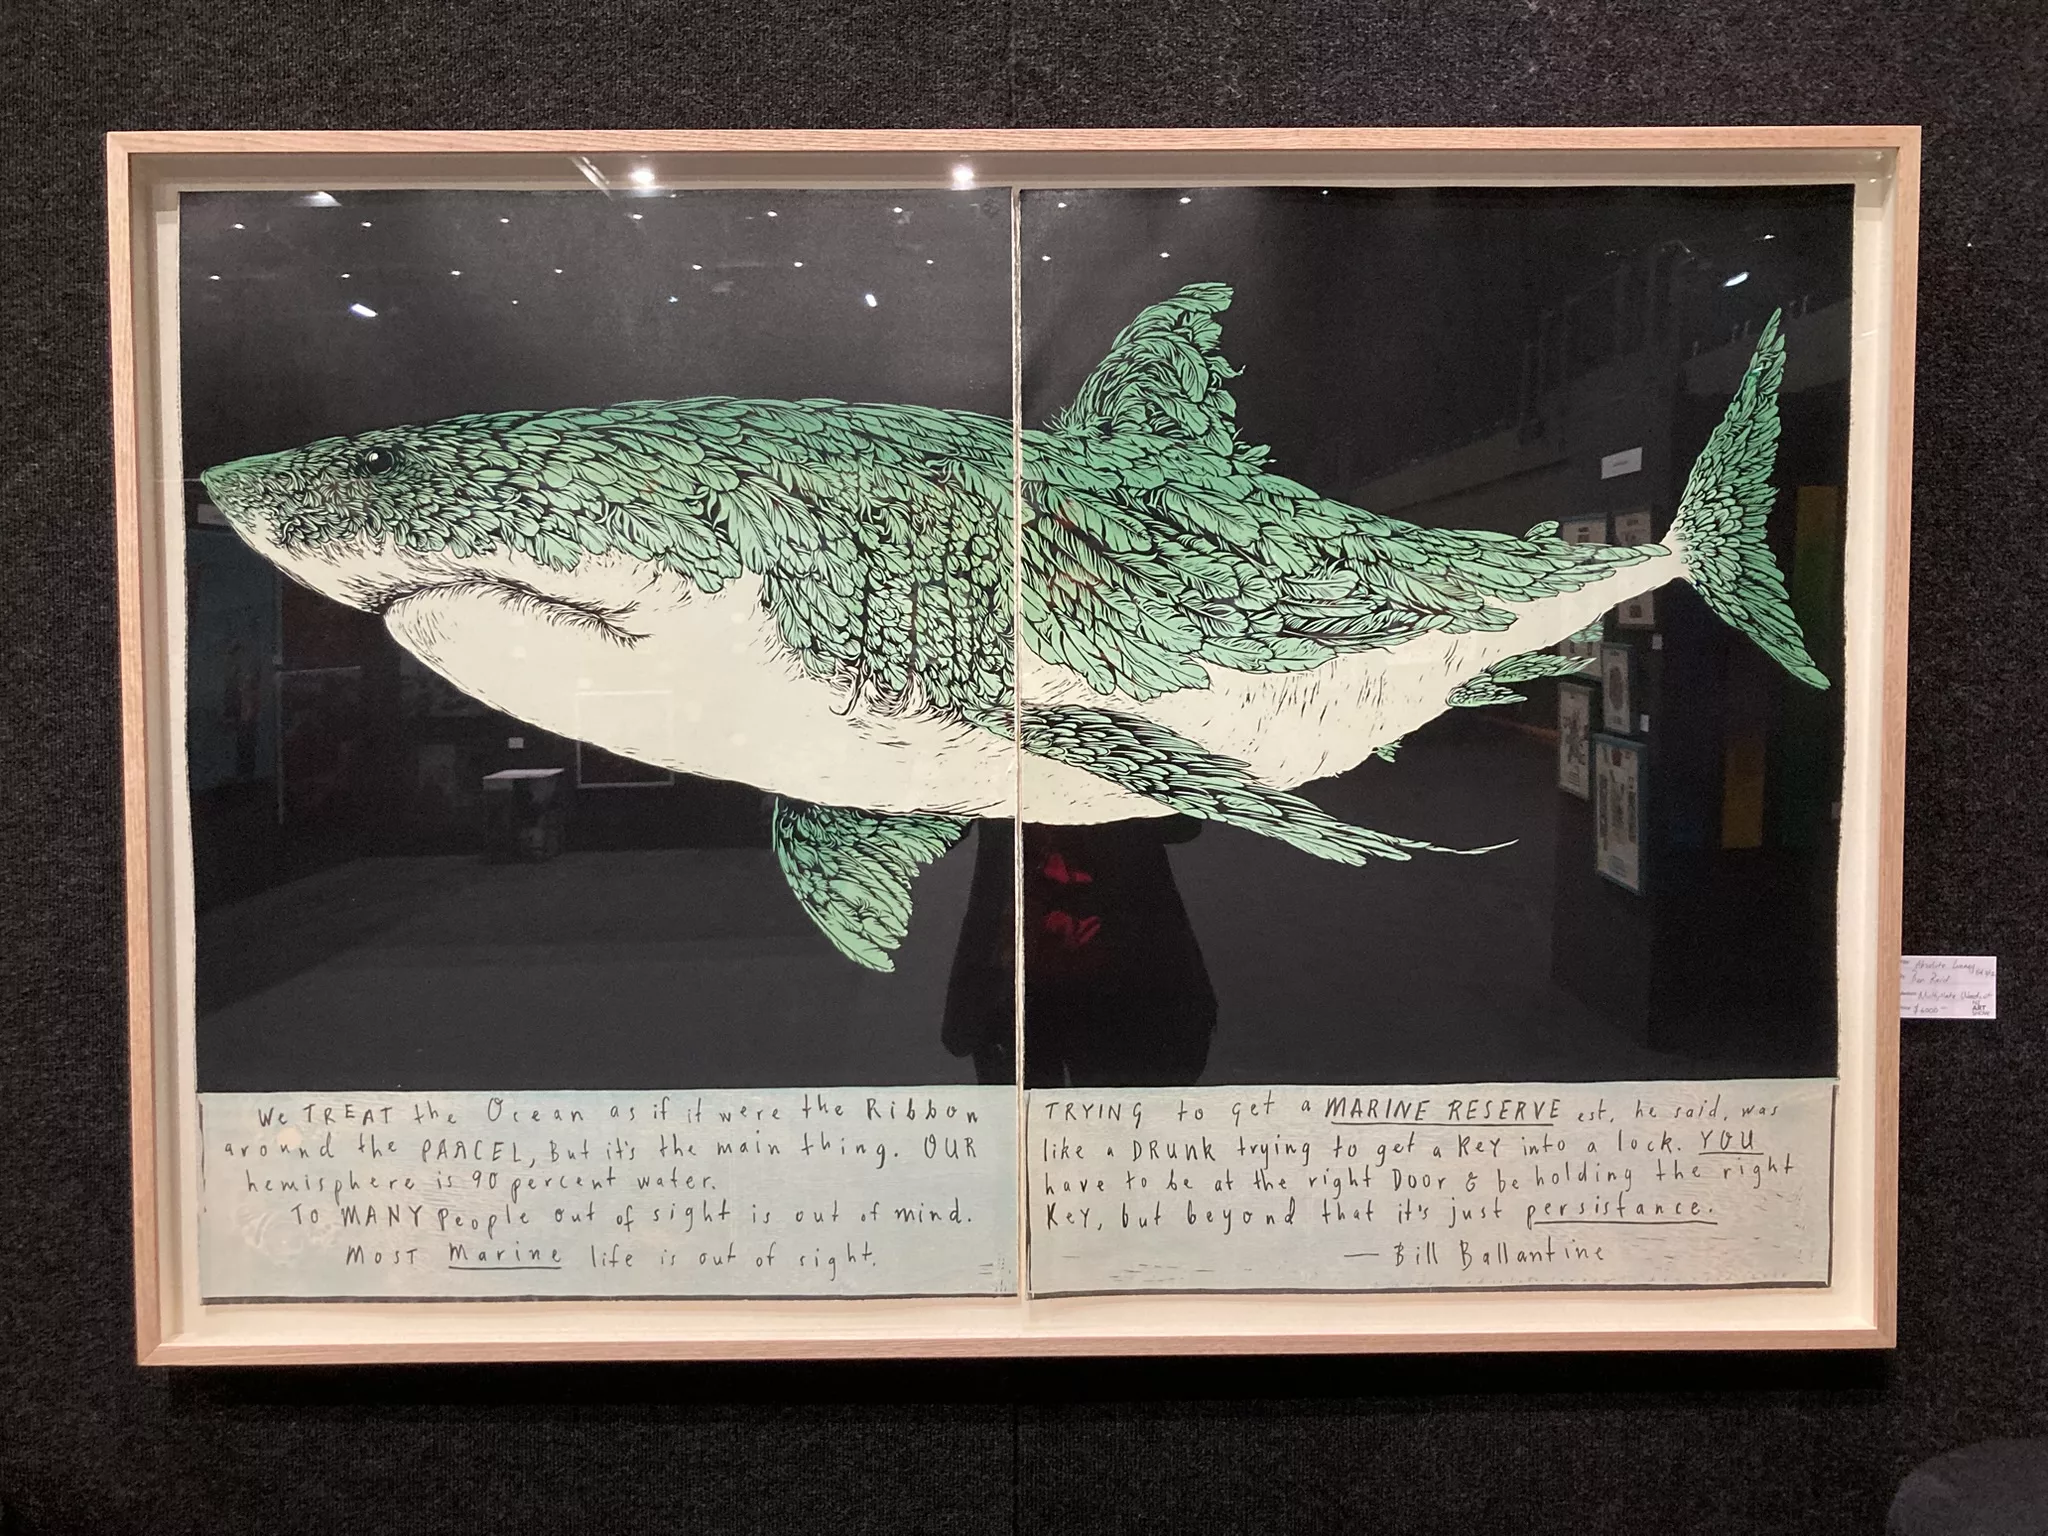 We TREAT the Ocean as if it were the Ribbon
around the PARCEL, But it's the main thing. OUR
hemisphere is 90 percent water.
To MANY people out of sight is out of mind.
MOST Marine life is out of sight.
TRYING to get a MARINE RESERVE est, he said, was
like a DRUNK trying to get a KeY into a lock. YOU
have to be at the right Door & be holding the right
KeY, but beyond that it's just persistance.
— Bill Ballantine
Absolute
Multiplate Woodcut
ART
$6000